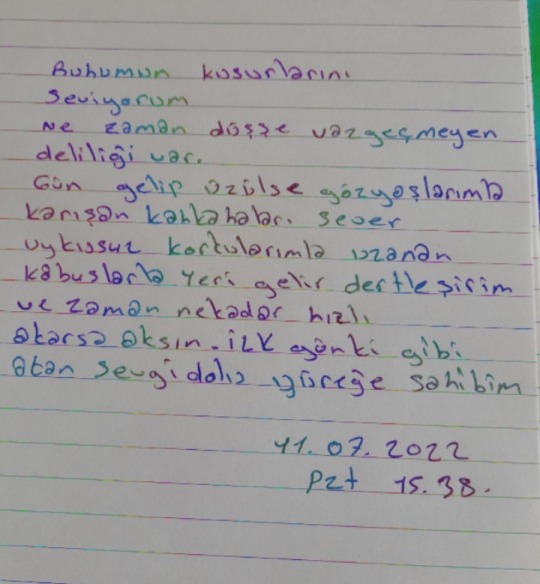 Ruhumun kusurlarını
seviyorum
Ne zaman düşse vazgeçmeyen
deliliği var.
Gün gelip üzülse gözyaşlarımla
karışan kahkahaları sever
uykusuz korkularımla uzanan
kabuslarla yeri gelir dertleşirim
ve zaman nekadar hızlı
akarsa aksın. ilk günki gibi
atan sevgi dolu yüreğe sahibim
11.07.2022
Pzt 15.38.